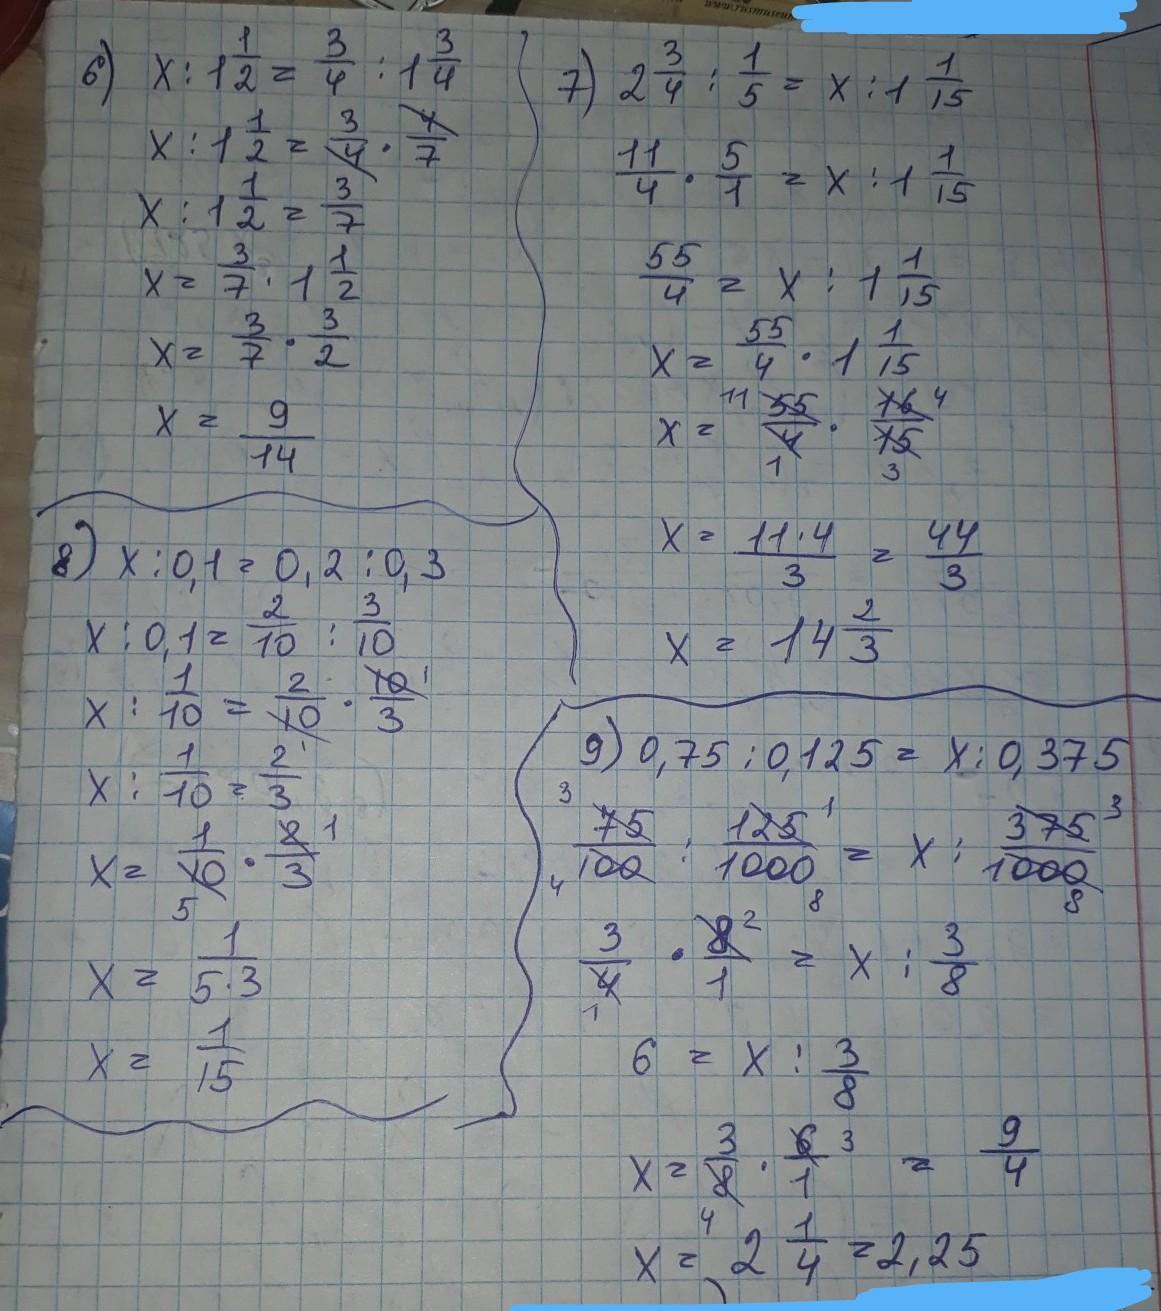 www.rusmuseum
6) x : 1 1/2 = 3/4 : 1 3/4
x : 1 1/2 = 3/4 · 4/7
x : 1 1/2 = 3/7
x = 3/7 · 1 1/2
x = 3/7 · 3/2
x = 9/14
7) 2 3/4 : 1/5 = x : 1 1/15
11/4 · 5/1 = x : 1 1/15
55/4 = x : 1 1/15
x = 55/4 · 1 1/15
x = 11 55/4 1 · 16 4/15 3
x = 11·4/3 = 44/3
x = 14 2/3
8) x : 0,1 = 0,2 : 0,3
x : 0,1 = 2/10 : 3/10
x : 1/10 = 2/10 · 10 1/3
x : 1/10 = 2/3
x = 1/10 5 · 2 1/3
x = 1/5·3
x = 1/15
9) 0,75 : 0,125 = x : 0,375
3 75/100 4 : 125 1/1000 8 = x : 375 3/1000 8
3/4 1 · 8 2/1 = x : 3/8
6 = x : 3/8
x = 3/8 4 · 6 3/1 = 9/4
x = 2 1/4 = 2,25